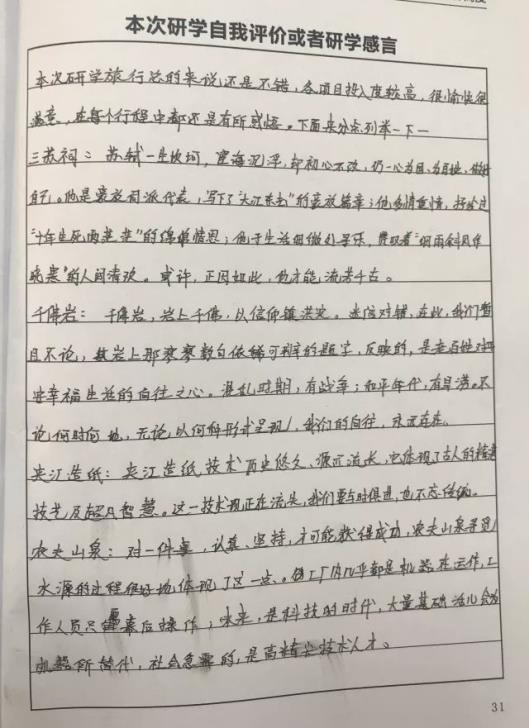 本次研学自我评价或者研学感言
本次研学旅行总的来说还是不错,各项目投入度较高,很愉快很
满意,在每个行程中都还是有所感悟。下面来分点列举一下一
三苏祠:苏轼一生坎坷,宦海沉浮,却初心不改,仍一心为国、为百姓、做好
自己。他是豪放词派代表,写下了“大江东去”的豪放篇章;他多情重情,抒发过
“十年生死两茫茫”的绵绵情思;他于生活细微处寻乐,
的人间清欢。或许,正因如此,他才能流芳千古。
千佛岩:千佛岩,岩上千佛,以信仰镇洪灾。迷信对错,在此,我们暂
且不论,其岩上那寥寥数句依稀可辨的题字,反映的,是老百姓对平
安幸福生活的向往之心。混乱时期,有战争;和平年代,有旱涝。不
论何时何地,无论以何种形式呈现,我们的向往,永远存在。
夹江造纸:夹江造纸技术历史悠久,源远流长,它体现了古人的精湛
技艺及超凡智慧。这一技术现正在流失,我们要与时俱进,也不忘传统。
农夫山泉:对一件事,认真、坚持,才可能获得成功,农夫山泉寻觅
水源的过程很好地体现了这一点。但工厂内几乎都是机器在运作,工
作人员只需幕后操作;未来,是科技的时代,大量基础活儿会为
机器所替代,社会急需的,是高精尖技术人才。
31